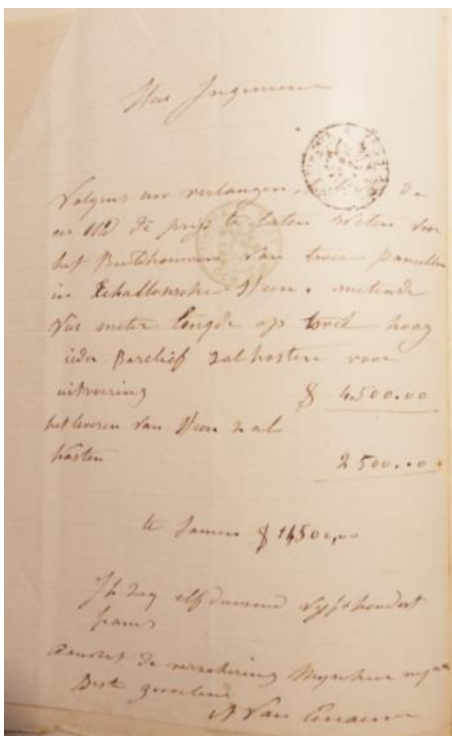 Heer Ingenieur
Volgens uw verlangen, de
eer UE de prijs te laten weten voor
het Beeldhouwen van twee paneelen
in Echallonsche steen. metende
vier meter lengde op twee hoog
ieder Barelief zal kosten voor
uitvoering 4.500.00
het leveren van steen zal
kosten 2500.00
te Samen 11,500,00
Ik zeg elfduizend vijfhondert
francs
Aanvret de verzekering Mynheer myne
Beste gevoelens
Van